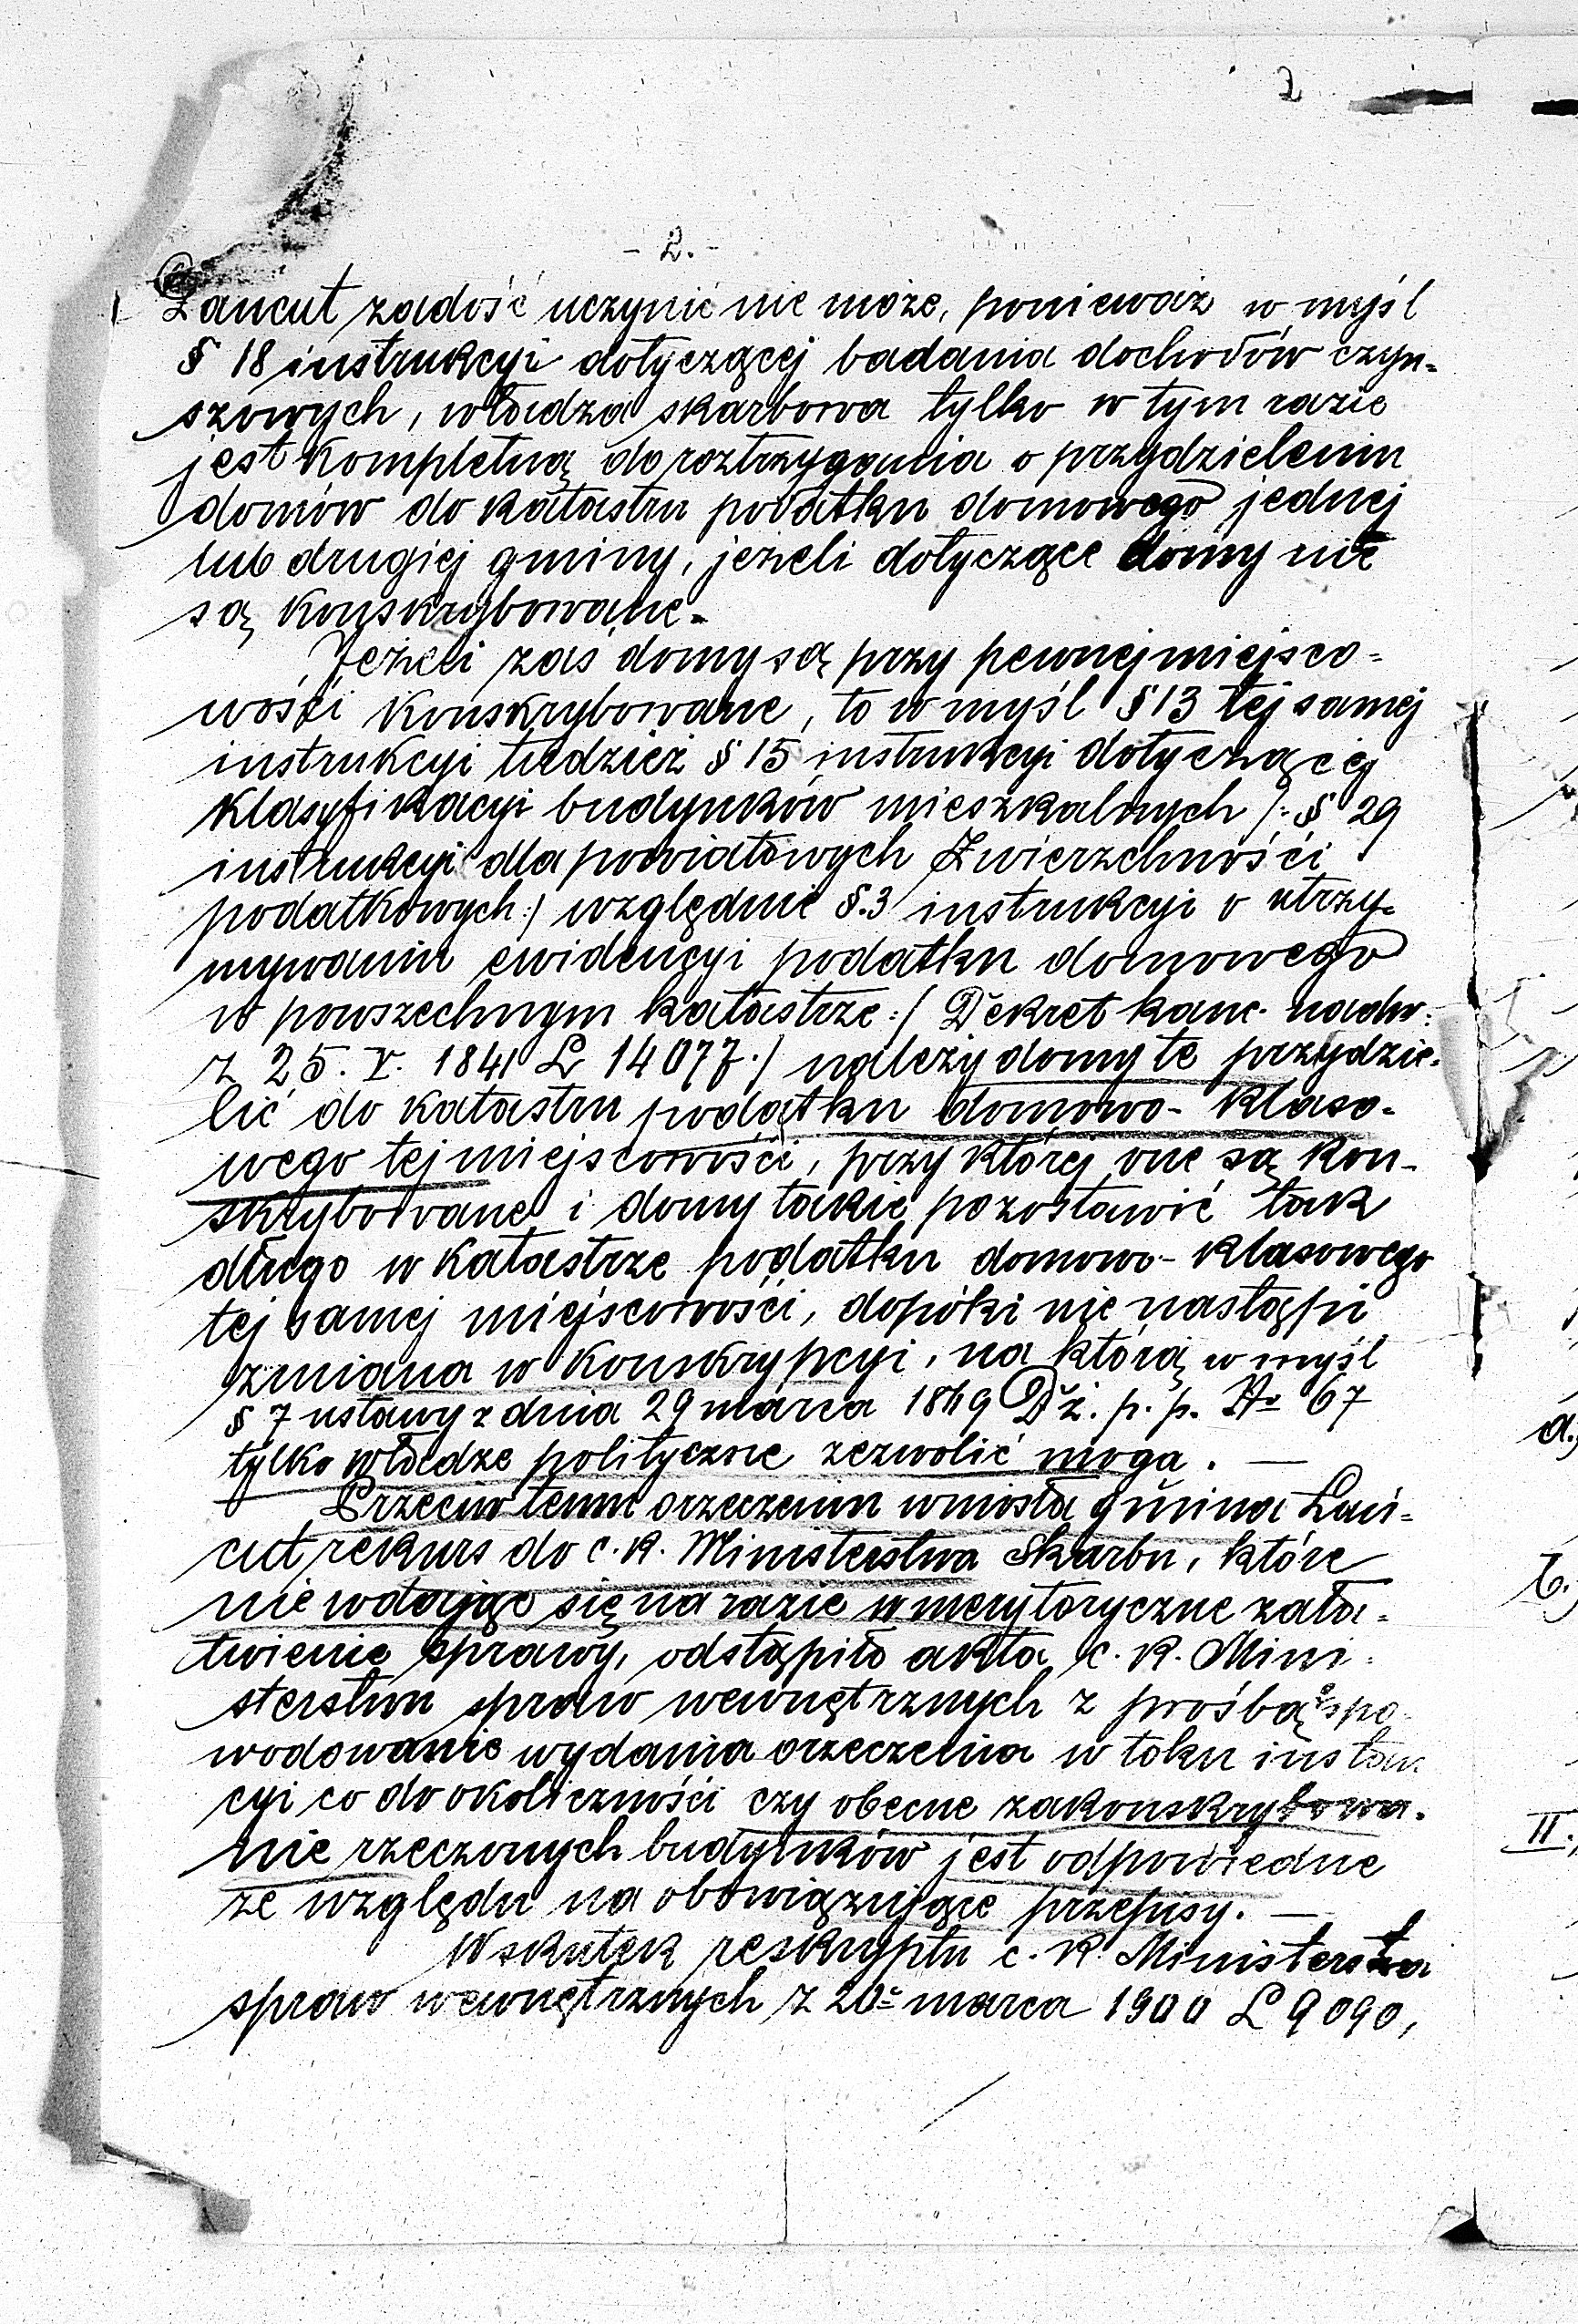 2
- 2. -
Łancut zadość uczynić nie może, ponieważ w myśl
§ 18 instrukcyi dotyczącej badania dochodów czyn-
szowych, władza skarbowa tylko w tym razie
jest kompletną do roztrzygania o przydzieleniu
domów do katastru podatku domowego jednej
lub drugiej gminy, jeżeli dotyczące domy nie
są konskrybowane.
Jeżeli zaś domy są przy pewnej miejsco-
wości konskrybowane, to w myśl § 13 tej samej
instrukcyi tudzież § 15 instrukcyi dotyczącej
klasyfikacyi budynków mieszkalnych /: § 29
instrukcyi dla powiatowych Zwierzchności
podatkowych :/ względnie §.3 instrukcyi o utrzy-
mywaniu ewidencyi podatku domowego
w powszechnym katastrze :/ Dekret kanc. nadw:
z 25. V. 1841 L 14077 ./ należy domy te przydzie-
lić do katastru podatku domowo- klaso-
wego tej miejscowości, przy której one są kon-
skrybowane i domy takie pozostawić tak
długo w katastrze podatku domowo- klasowego
tej samej miejscowości, dopóki nie nastąpi
zmiana w konskrypcyi, na którą w myśl
§ 7 ustawy z dnia 29 marca 1869 Dż. p. p. No 67
tylko władze polityczne zezwolić mogą. —
Przeciw temu orzeczeniu wniosła gmina Łań-
cut rekurs do c. k. Ministerstwa Skarbu, które
nie wdając się na razie w merytoryczne zała-
twienie sprawy, odstąpiło akta c. k. Mini-
sterstwu spraw wewnętrznych z prośbą o spo-
wodowanie wydania orzeczenia w toku instan-
cyi co do okoliczności czy obecne zakonskrybowa-
nie rzeczonych budynków jest odpowiedne
ze względu na obowiązujące przepisy. —
Wskutek reskryptu c. k. Ministerstwa
spraw wewnętrznych z 20 marca 1900 L 9090,
a.)
b.)
II.